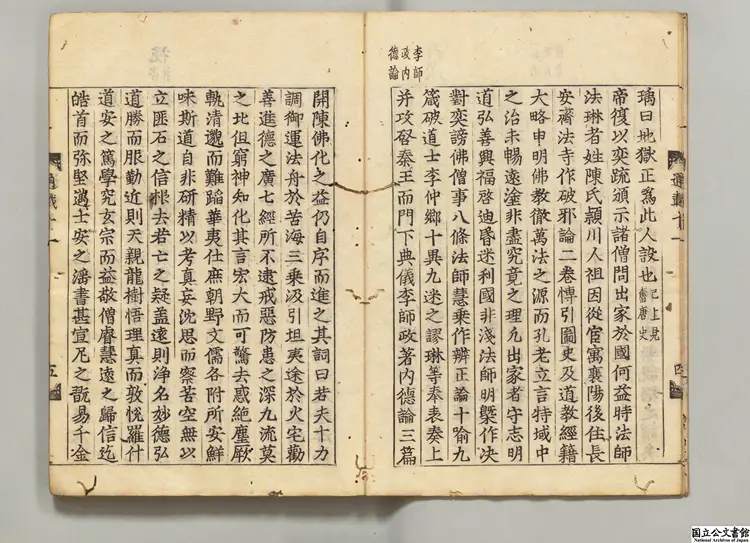 李師
政内
德論
瑀曰地獄正爲此人設也
已上見
舊唐史
帝復以奕疏頒示諸僧問出家於國何益時法師
法琳者姓陳氏頴川人祖因從官寓襄陽後住長
安齊法寺作破邪論二卷慱引圖史及道教經籍
大略申明佛教徹萬法之源而孔老立言特域中
之治未暢遠塗非盡究竟之理凢出家者守志明
道弘善興福啓迪昬迷利國非淺法師明槩作决
對奕謗佛僧事八條法師慧乗作辯正論十喻九
箴破道士李仲卿十異九迷之謬琳等奉表奏上
并攻啓秦王而門下典儀李師政著内德論三篇
開陳佛化之益仍自序而進之其詞曰若夫十力
調御運法舟於苦海三乗汲引坦夷途於火宅勸
善進德之廣七經所不逮戒惡防患之深九流莫
之比但窮神知化其言宏大而可驚去惑絶塵厥
軌清邈而難蹈華夷仕庶朝野文儒各附所安鮮
味斯道自非研精以考真妄沈思而察苦空無以
立匪石之信根去若亡之疑盖遠則淨名妙德弘
道勝而服勤近則天親龍樹悟理真而敦恱羅什
道安之篤學究玄宗而益敬僧睿慧遠之歸信迄
皓首而弥堅邁士安之潘書甚宣尼之翫易千金
通載十一
五
国立公文書館
National Archives of Japan